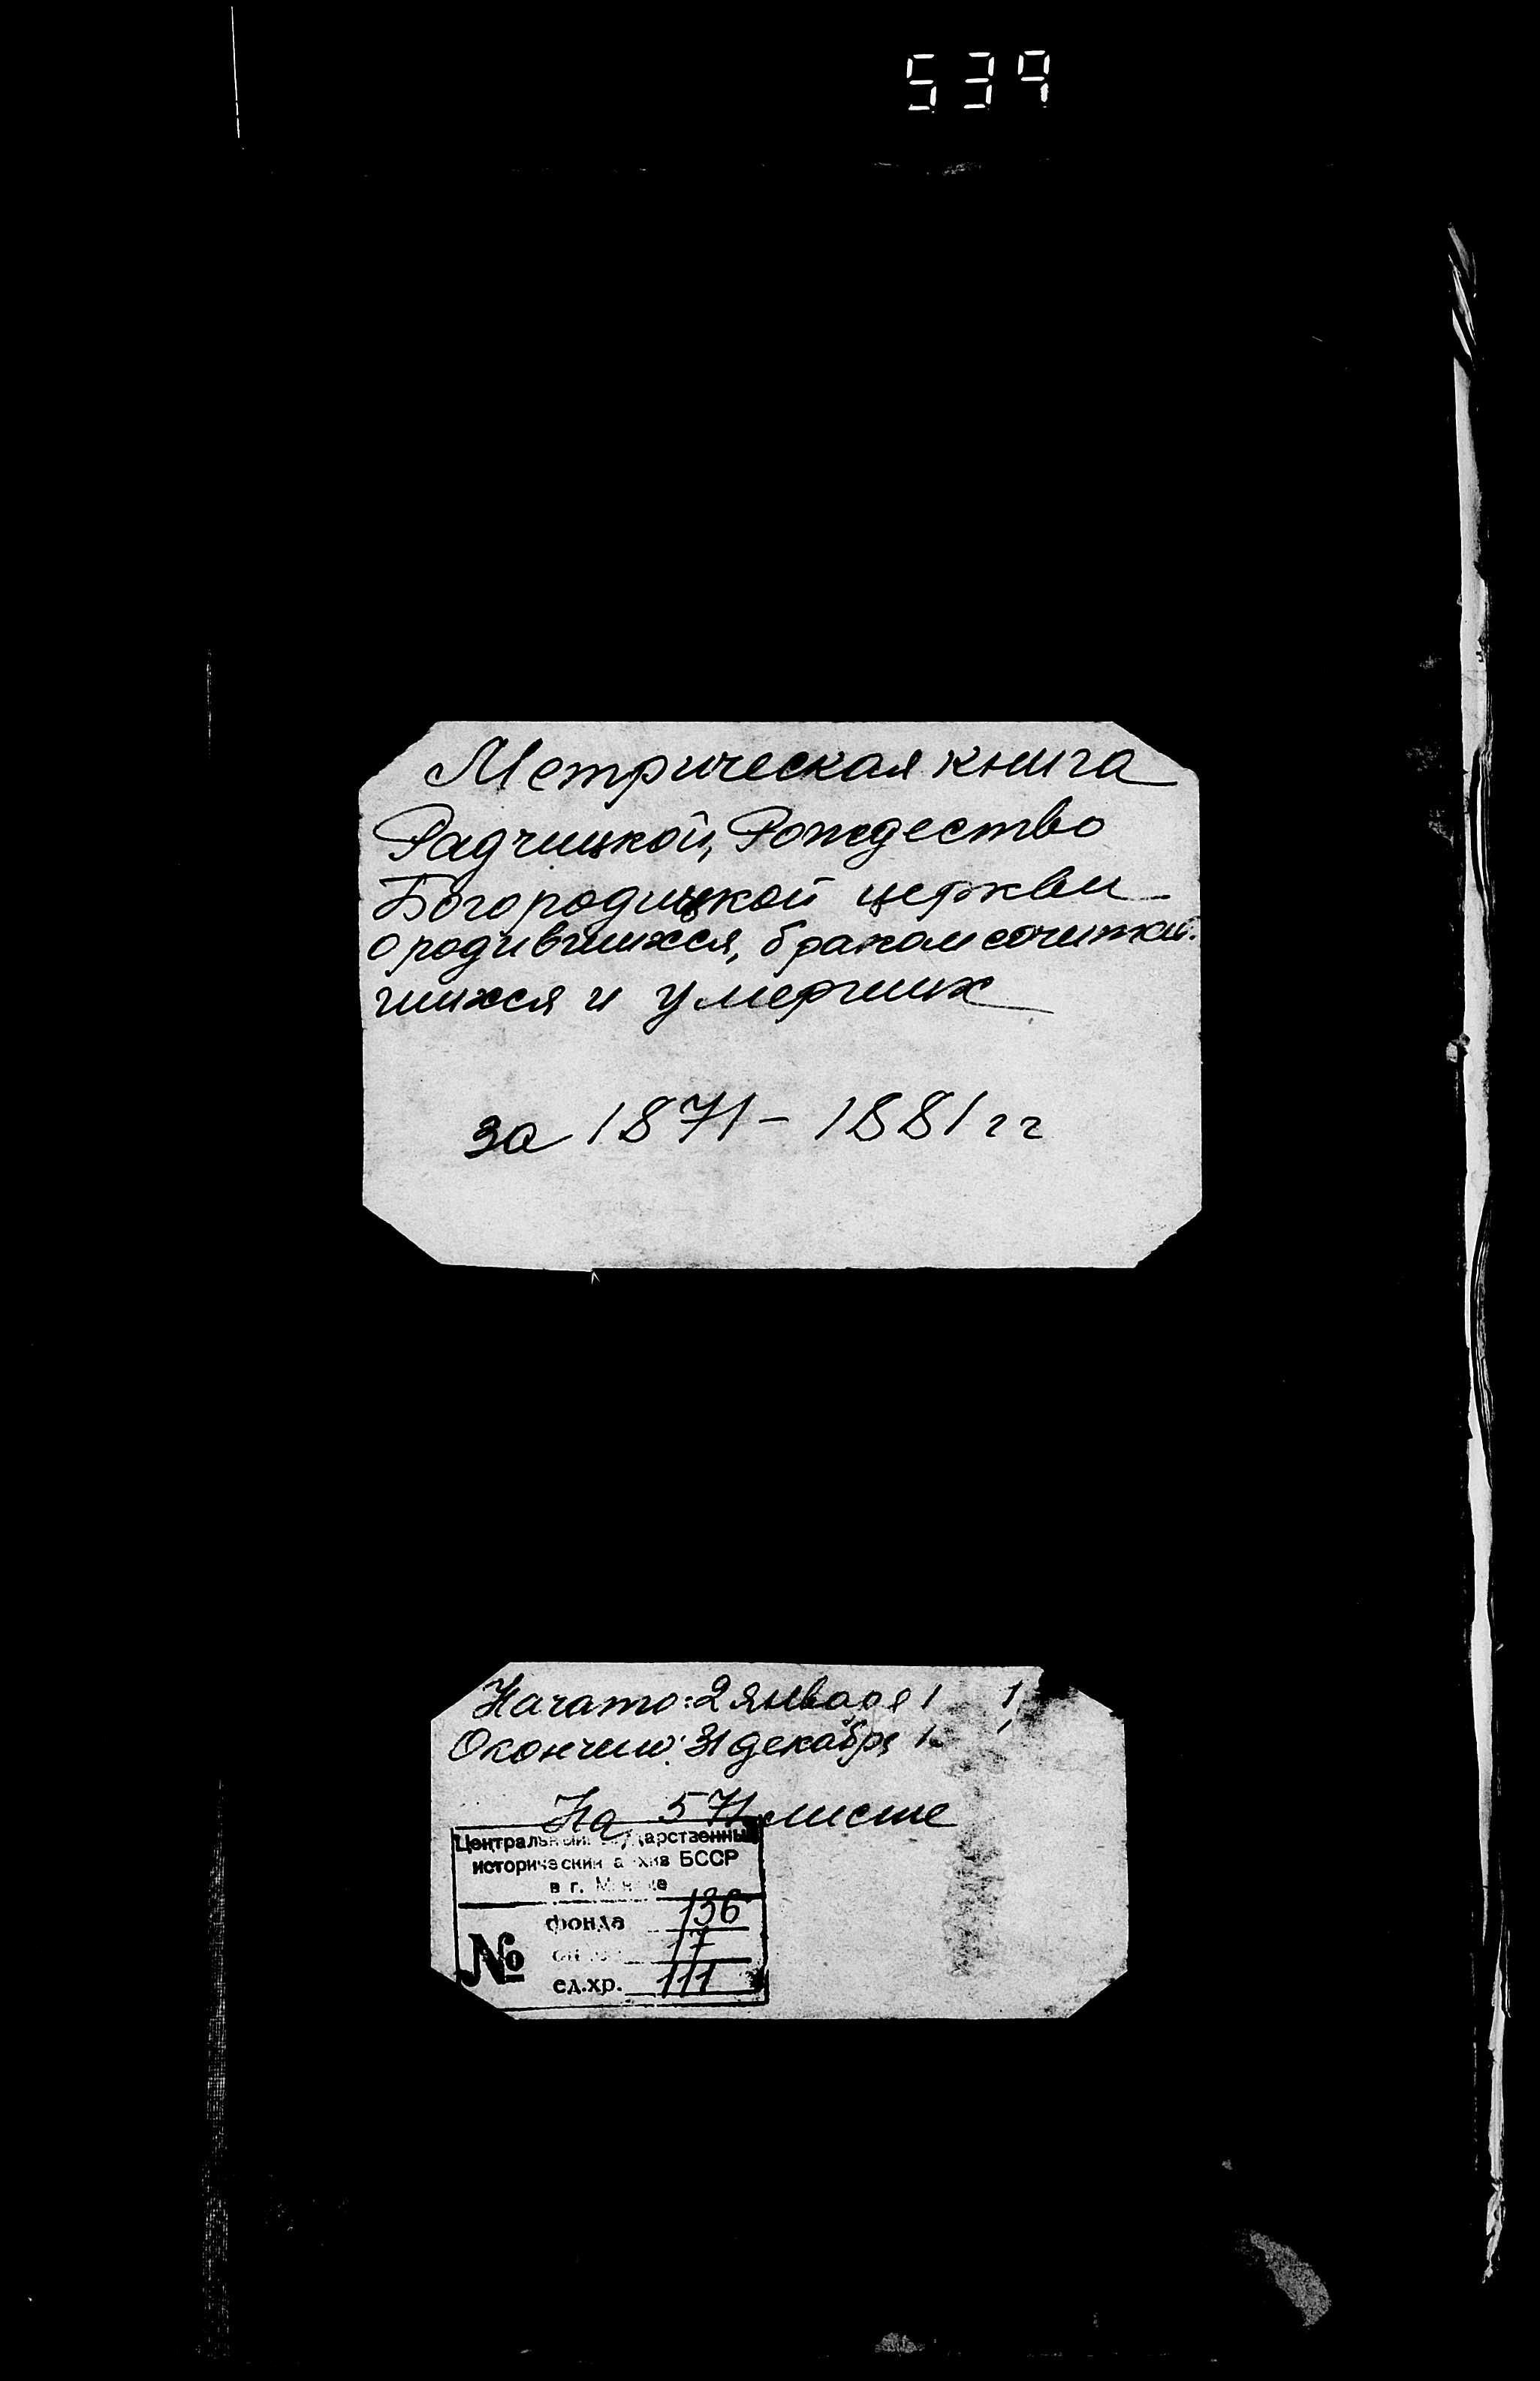 539
Метрическая книга
Радчицкой, Рождество
Богородицкой церкви
о родившихся, браком сочитав-
шихся и умерших
за 1871 – 1881 гг
Начато: 2 января 1
Окончено: 31 декабря 1
На 571 листе
Центральный государственный
исторический архив БССР
в г. Минске
№
фонда 136
17
ед.хр. 111